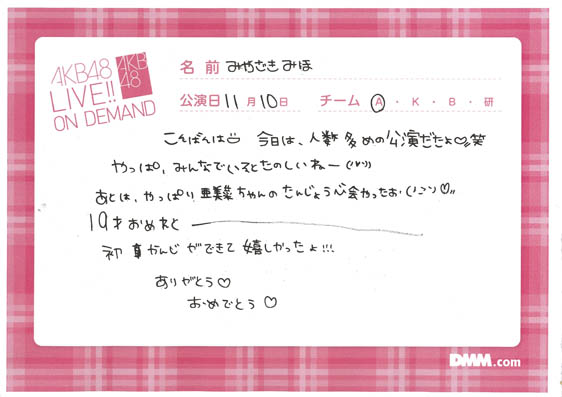 AKB48
LIVE!!
ON DEMAND
AKB
48
名前 みやざきみほ
公演日 11月10日 チーム A・K・B・研
こんばんは 今日は、人数多めの公演だたよ♡笑
やっぱ, みんなでいるとたのしいねー
あとは, やっぱり! 亜美菜ちゃんのたんじょう会やったお ♡"
19才おめおと
初 かんじができて嬉しかったよ!!!
ありがとう♡
おめでとう♡
DMM.com